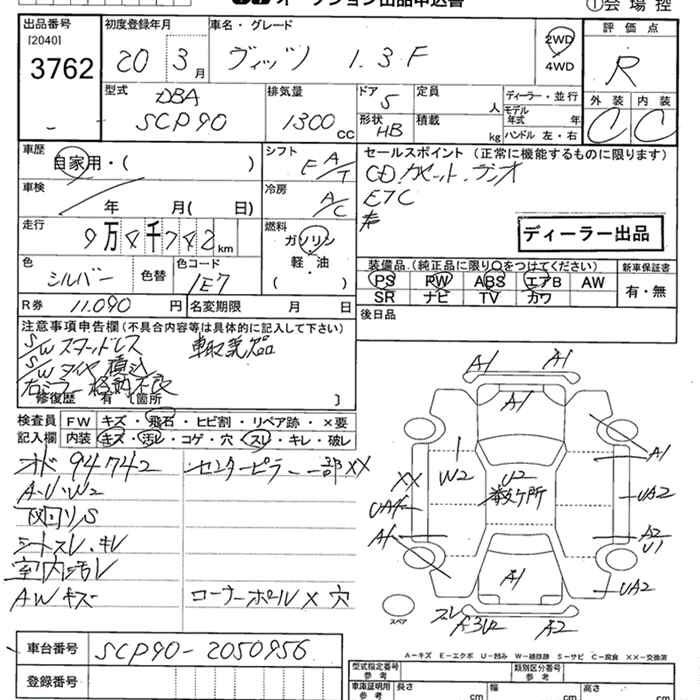 オークション出品申込書
①会場控
出品番号
[2040]
3762
初度登録年月
20 3月
車名・グレード
ヴィッツ 1.3 F
2WD
4WD
評価点
R
外装 内装
C C
型式
DBA
SCP90
排気量
1300cc
ドア 5
形状 HB
定員 人
積載 kg
ディーラー・並行
モデル年式 年
ハンドル 左・右
車歴
自家用・( )
シフト
F A/T
セールスポイント (正常に機能するものに限ります)
CD.カセット.ラジオ
ETC
ディーラー出品
車検
年 月( 日)
冷房
A/C
走行
9万4千742km
燃料
ガソリン
軽・油
( )
色
シルバー
色替
色コード
1E7
装備品 (純正品に限り○をつけてください)
PS PW ABS エアB AW
SR ナビ TV カワ
新車保証書
有・無
R券 11,090円
名変期限 月 日
後日品
注意事項申告欄(不具合内容等は具体的に記入して下さい)
S/W スマートレス 車取説欠品
S/W タイヤ積込
右ミラー格納不良
修復歴 有 〔箇所 〕
検査員記入欄
FW キズ・飛石・ヒビ割・リペア跡・×要
内装 キズ・汚レ・コゲ・穴・スレ・キレ・破レ
オド 94742
センターピラー一部XX
A・U・W2
下回リS
シートスレ・キレ
室内汚レ
AWキズ
コーナーポール×穴
A1 A1
A1
A1
W2
U2
数ヶ所
XX
UA2
A1
A2
U1
A1
UA2
スレ
A3U2
A2
スペア
A-キズ E-エクボ U-凹み W-補修跡 S-サビ C-腐食 XX-交換済
車台番号
SCP90-2050956
登録番号
型式指定番号 参考
類別区分番号 参考
車庫証明用 参考
長さ cm
幅 cm
高さ cm